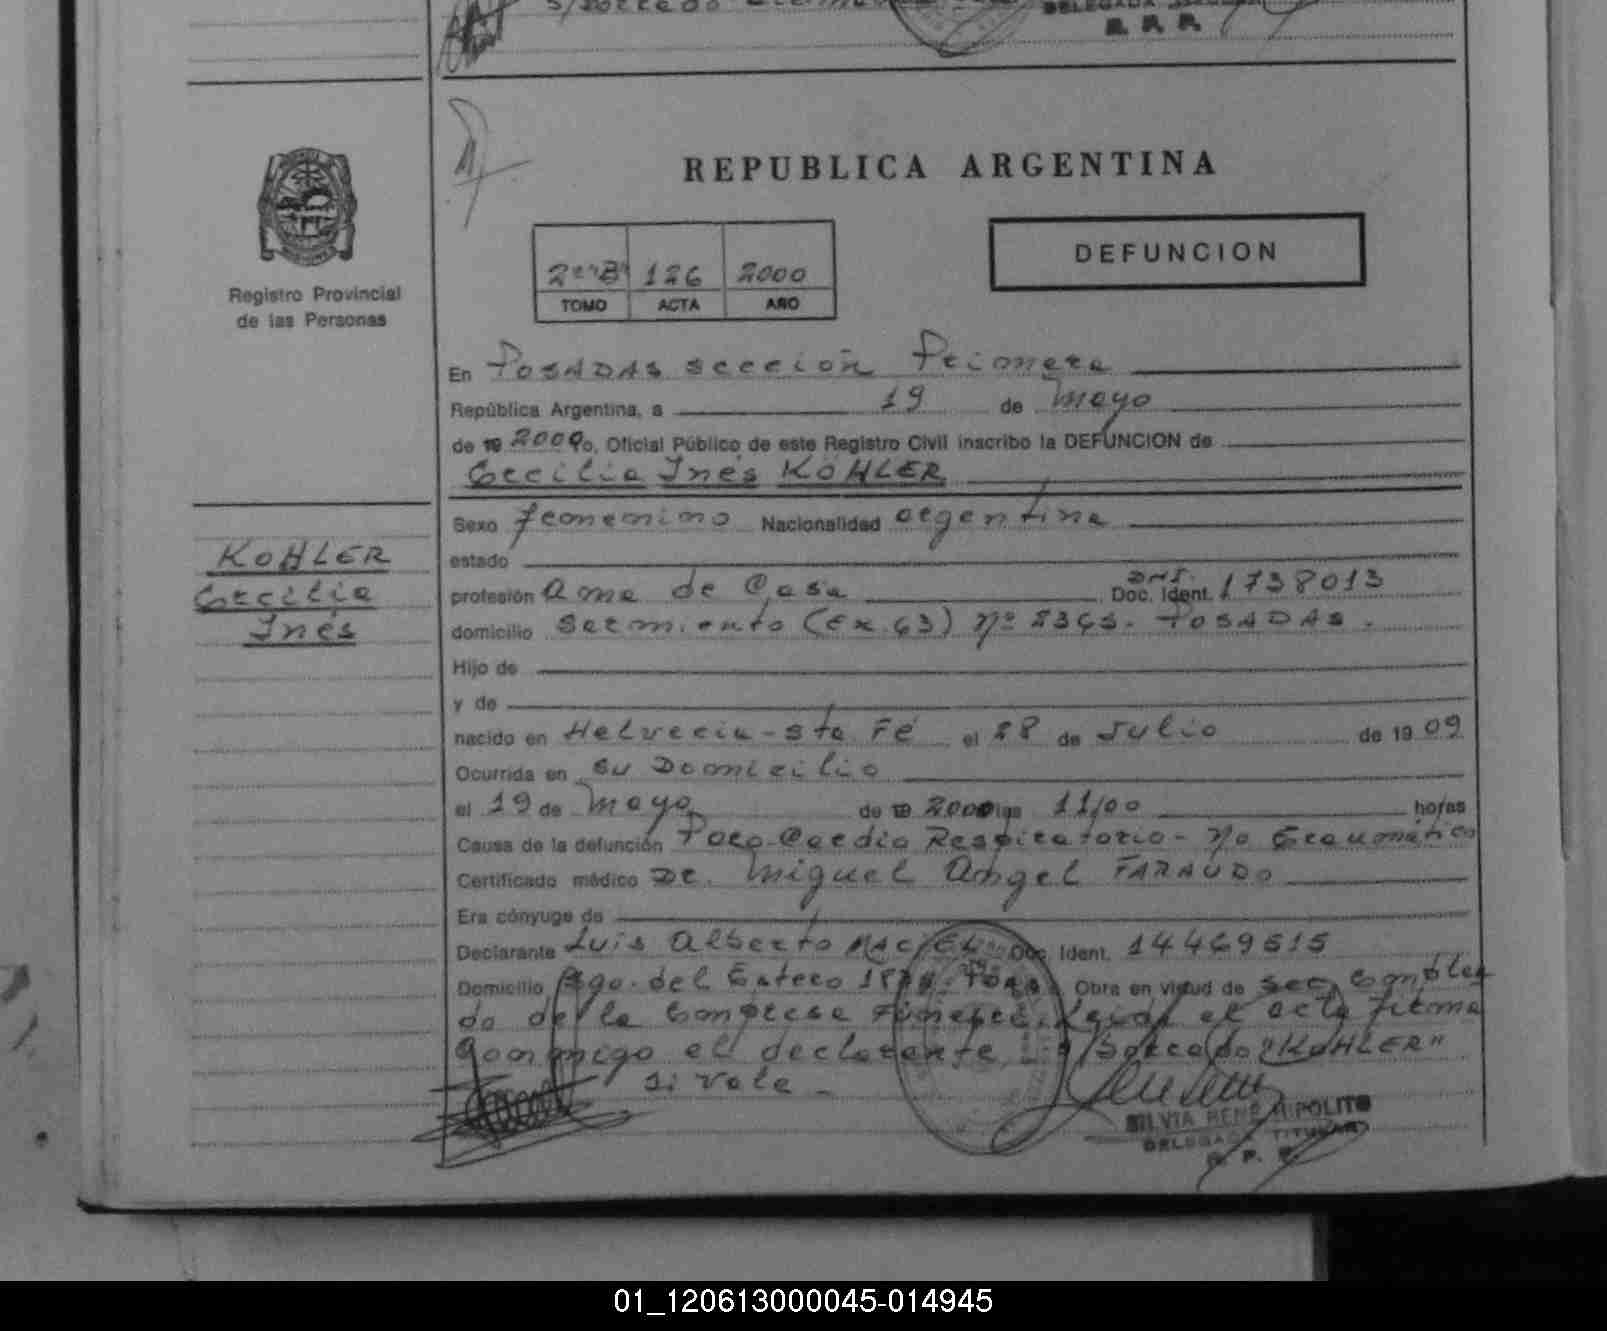 REPUBLICA ARGENTINA
DEFUNCION
126 2000
TOMO ACTA AÑO
Registro Provincial
de las Personas
En POSADAS sección Primera
República Argentina, a 19 de Mayo
de 19 2000 Yo, Oficial Público de este Registro Civil inscribo la DEFUNCION de
Cecilia Inés KOHLER
Sexo femenino Nacionalidad argentina
KOHLER
Cecilia
Inés
estado
profesión Ama de Casa DNI. Doc. Ident. 1738013
domicilio Sarmiento (Ex. 63) Nº POSADAS.
Hijo de
y de
nacido en Helvecia - Sta Fé el 28 de Julio de 1909
Ocurrida en su Domicilio
el 19 de Mayo de 19 2000 las 11,00 horas
Causa de la defunción Paro-Cardio Respiratorio - No traumático
Certificado médico Dr. Miguel Angel FARAUDO
Era cónyuge de
Declarante Luis Alberto MACIEL Doc. Ident. 14469515
Domicilio Sgo. del Estero Obra en virtud de ser Emplea
do de la Empresa Funebre. Leída el acta firma
conmigo el declarante, S/borrado "KOHLER"
si vale -
SILVIA RENE HIPOLITO
DELEGADA TITULAR
R. P. P.
01_120613000045-014945